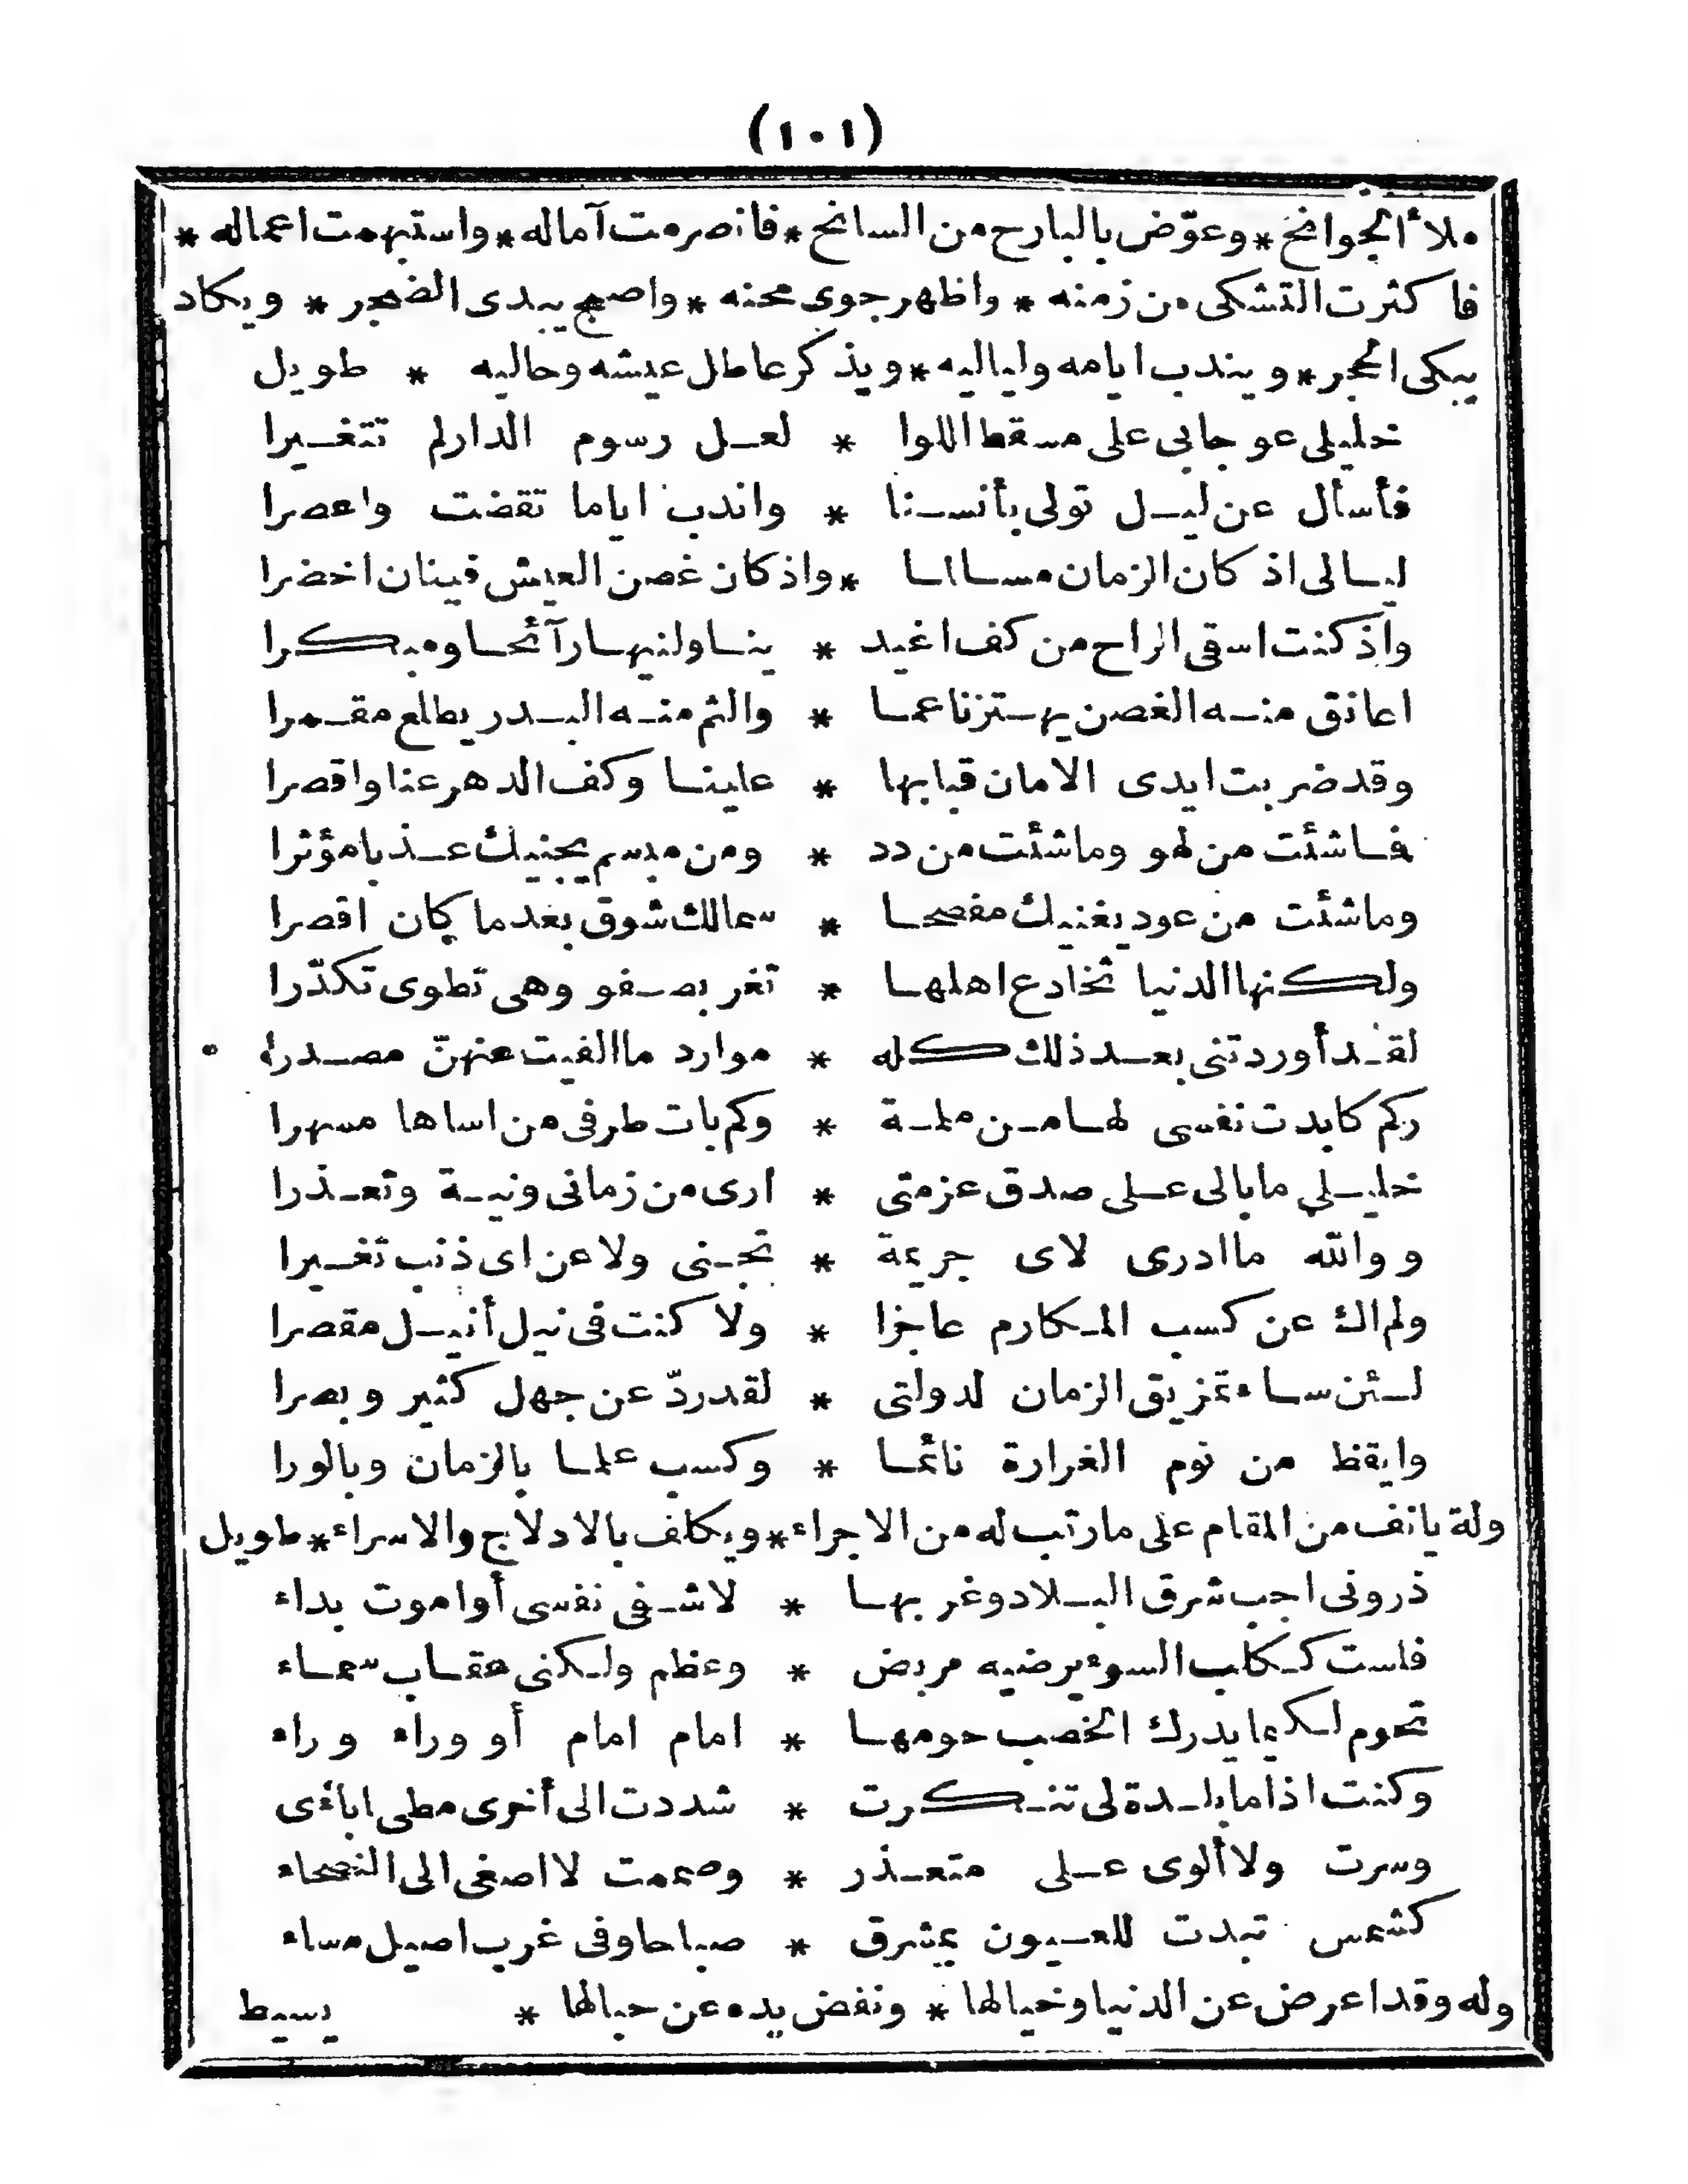 (١٠١)
ملأ الجوانح * وعوّض بالبارح من السانح * فانصرمت آماله * واستبهمت اعماله *
فاكثرت التشكى من زمنه * واظهر جوى محنه * واصبح يبدى الضجر * ويكاد
يبكى الحجر * ويندب ايامه ولياليه * ويذكر عاطل عيشه وحاليه * طويل
خليلى عوجابى على مسقط اللوا * لعل رسوم الدار لم تتغيرا
فأسأل عن ليل تولى بأنسنا * واندب اياما تقضت واعصرا
ليالى اذ كان الزمان مسالما * واذ كان غصن العيش فينان اخضرا
واذ كنت اسقى الراح من كف اغيد * يناولنيها رآئحا ومبكرا
اعانق منه الغصن يهتز ناعما * والثم منه البدر يطلع مقمرا
وقد ضربت ايدى الامان قبابها * علينا وكف الدهر عنا واقصرا
فماشئت من لهو وماشئت من دد * ومن مبسم يجنيك عذبا مؤثرا
وماشئت من عود يغنيك مفصحا * سمالك شوق بعد ما كان اقصرا
ولكنها الدنيا تخادع اهلها * تغر بصفو وهى تطوى تكدّرا
لقد أوردتنى بعد ذلك كله * موارد ما الفيت عنهنّ مصدرا
وكم كابدت نفسى لها من ملمة * وكم بات طرفى من اساها مسهرا
خليلي مابالى على صدق عزمتى * ارى من زمانى ونية وتعذرا
ووالله ما ادرى لاى جريمة * تجنى ولا عن اى ذنب تغيرا
ولم اك عن كسب المكارم عاجزا * ولا كنت فى نيل أنيل مقصرا
لئن ساء تمزيق الزمان لدولتى * لقد ردّ عن جهل كثير وبصرا
وايقظ من نوم الغرارة نائما * وكسب علما بالزمان وبالورا
وله يانف من المقام على مارتب له من الاجراء * ويكلف بالادلاج والاسراء * طويل
ذرونى اجب شرق البلاد وغربها * لاشفى نفسى أو اموت بداء
فلست ككلب السوء يرضيه مربض * وعظم ولكنى عقاب سماء
تحوم لكيما يدرك الخصب حومها * امام امام أو وراء وراء
وكنت اذا ما بلدة لى تنكرت * شددت الى أخرى مطى ابائى
وسرت ولا ألوى على متعذر * وصممت لا اصغى الى النصحاء
كشمس تبدت للعيون بمشرق * صباحا وفى غرب اصيل مساء
وله وقد اعرض عن الدنيا وخيالها * ونفض يده عن حبالها * بسيط